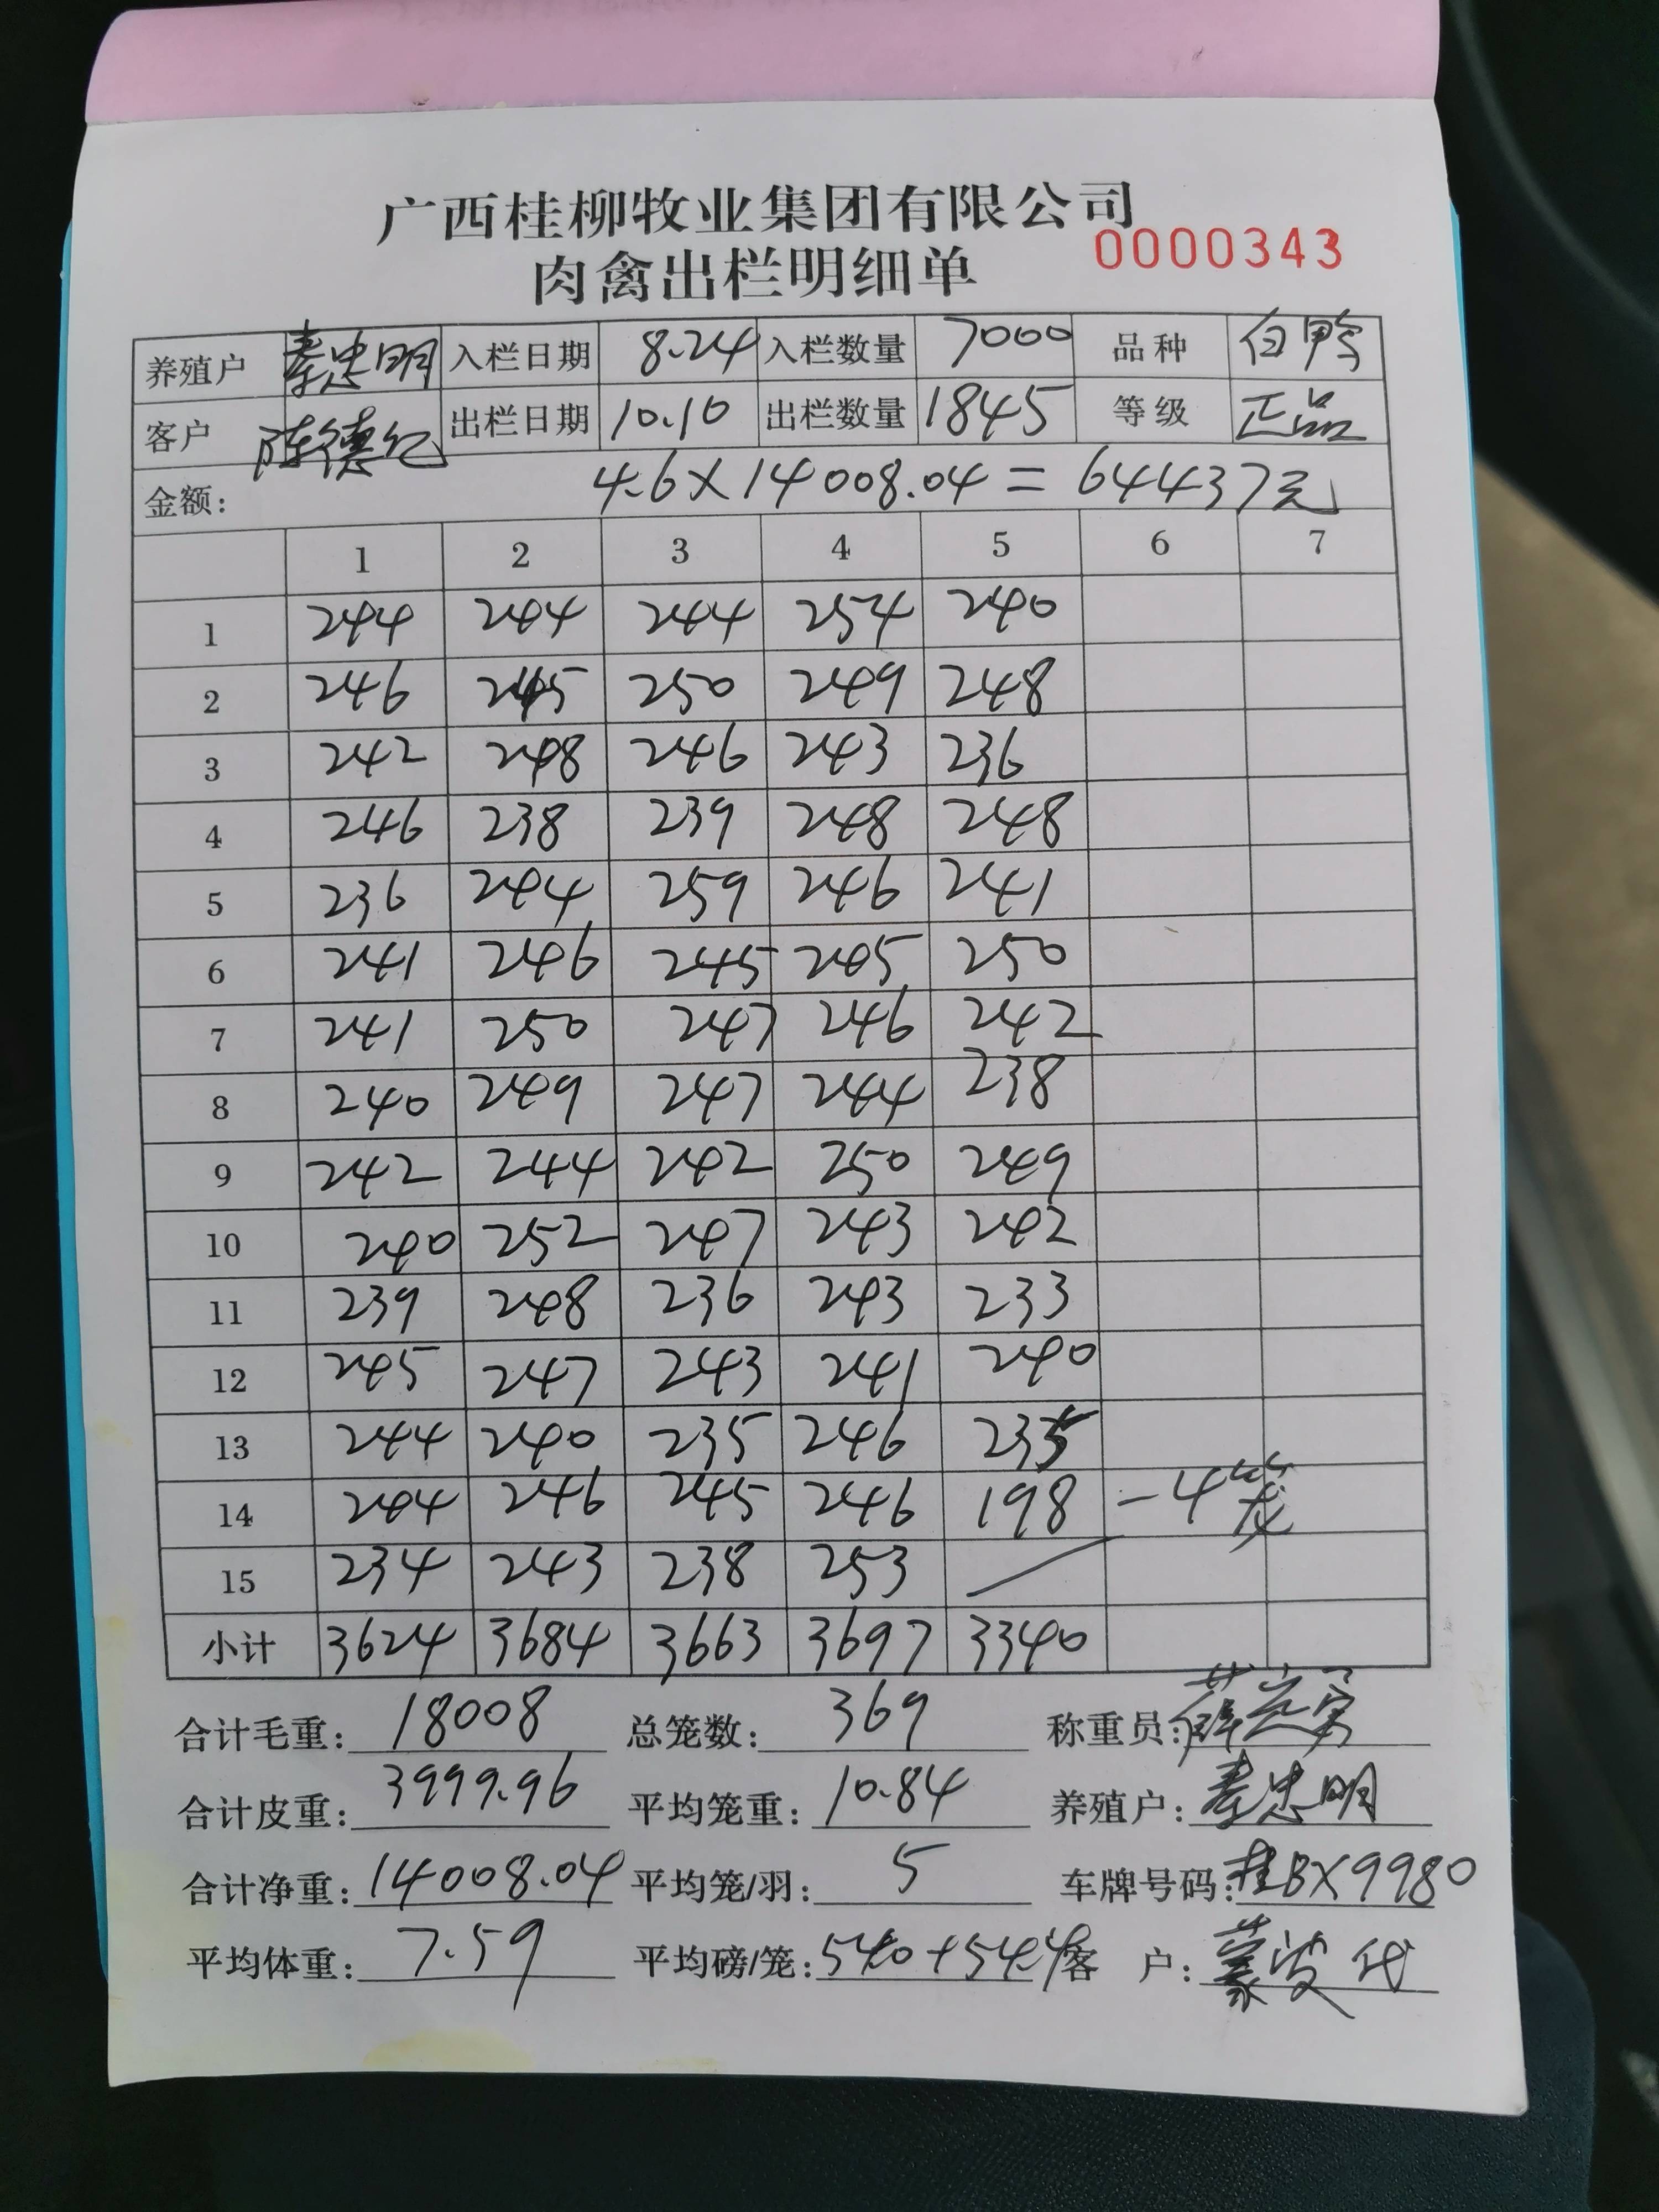 广西桂柳牧业集团有限公司
0000343
肉禽出栏明细单
养殖户 秦忠明 入栏日期 8.24 入栏数量 7000 品种 白鸭
客户 陈德纪 出栏日期 10.10 出栏数量 1845 等级 正品
金额: 4.6×14008.04=64437元
1 2 3 4 5 6 7
1 244 244 244 254 240
2 246 245 250 249 248
3 242 248 246 243 236
4 246 238 239 248 248
5 236 244 259 246 241
6 241 246 245 245 250
7 241 250 247 246 242
8 240 249 247 244 238
9 242 244 242 250 249
10 240 252 247 243 242
11 239 248 236 243 233
12 245 247 243 241 240
13 244 240 235 246 235
14 244 246 245 246 198 -4笼
15 234 243 238 253
小计 3624 3684 3663 3697 3340
合计毛重: 18008 总笼数: 369 称重员:
合计皮重: 3999.96 平均笼重: 10.84 养殖户: 秦忠明
合计净重: 14008.04 平均笼/羽: 5 车牌号码: 桂BX9980
平均体重: 7.59 平均磅/笼: 540+544 客 户: 蒙波代